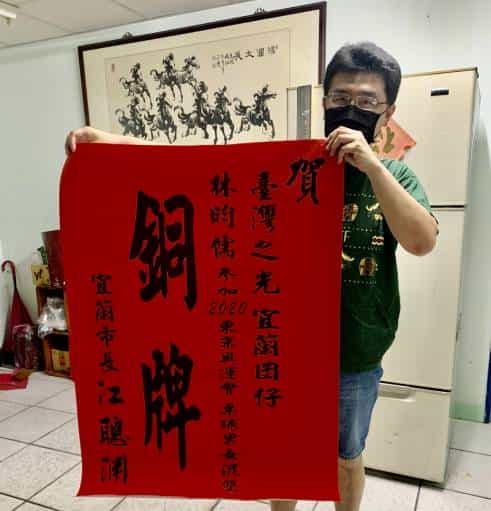 賀
臺灣之光 宜蘭囝仔
林昀儒 參加2020東京奧運會 桌球男女混雙
銅牌
宜蘭市長 江聰淵